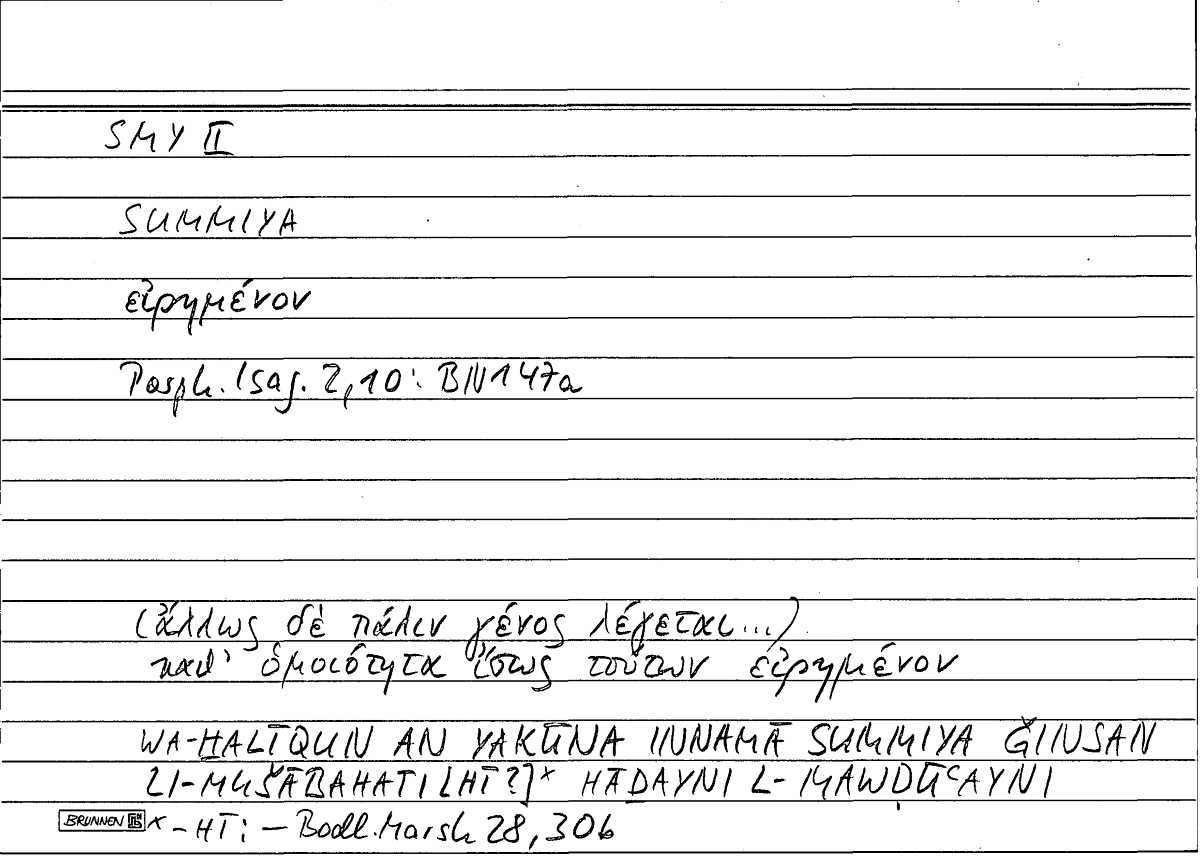 SMY II
SUMMIYA
εἰρημένον
Porph. Isag. 2,10: BN 147a
(ἄλλως δὲ πάλιν γένος λέγεται...)
καθ' ὁμοιότητα ἴσως τούτων εἰρημένον
WA-ḪALĪQUN AN YAKŪNA INNAMĀ SUMMIYA ǦINSAN
LI-MUŠĀBAHATI [HĪ?]× HĀḎAYNI L-MAWḌŪʿAYNI
BRUNNEN × -HĪ: – Bodl. Marsh 28, 30b